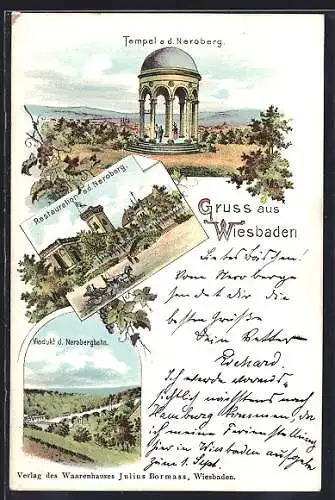 Tempel a d. Neroberg.
Restauration a d. Neroberg.
Gruss aus
Wiesbaden
Viadukt d. Nerobergbahn.
Liebes Lieschen!
Vom Neroberge
sendet dir die
besten Grüße
Dein Vetter
Eduard.
Ich werde voraus-
sichtlich nächstens nach
Hamburg kommen, da
ich meine Ferienstellung
hier in Wiesbaden aufgebe
zum 1. Sept.
Verlag des Waarenhauses Julius Bormass, Wiesbaden.